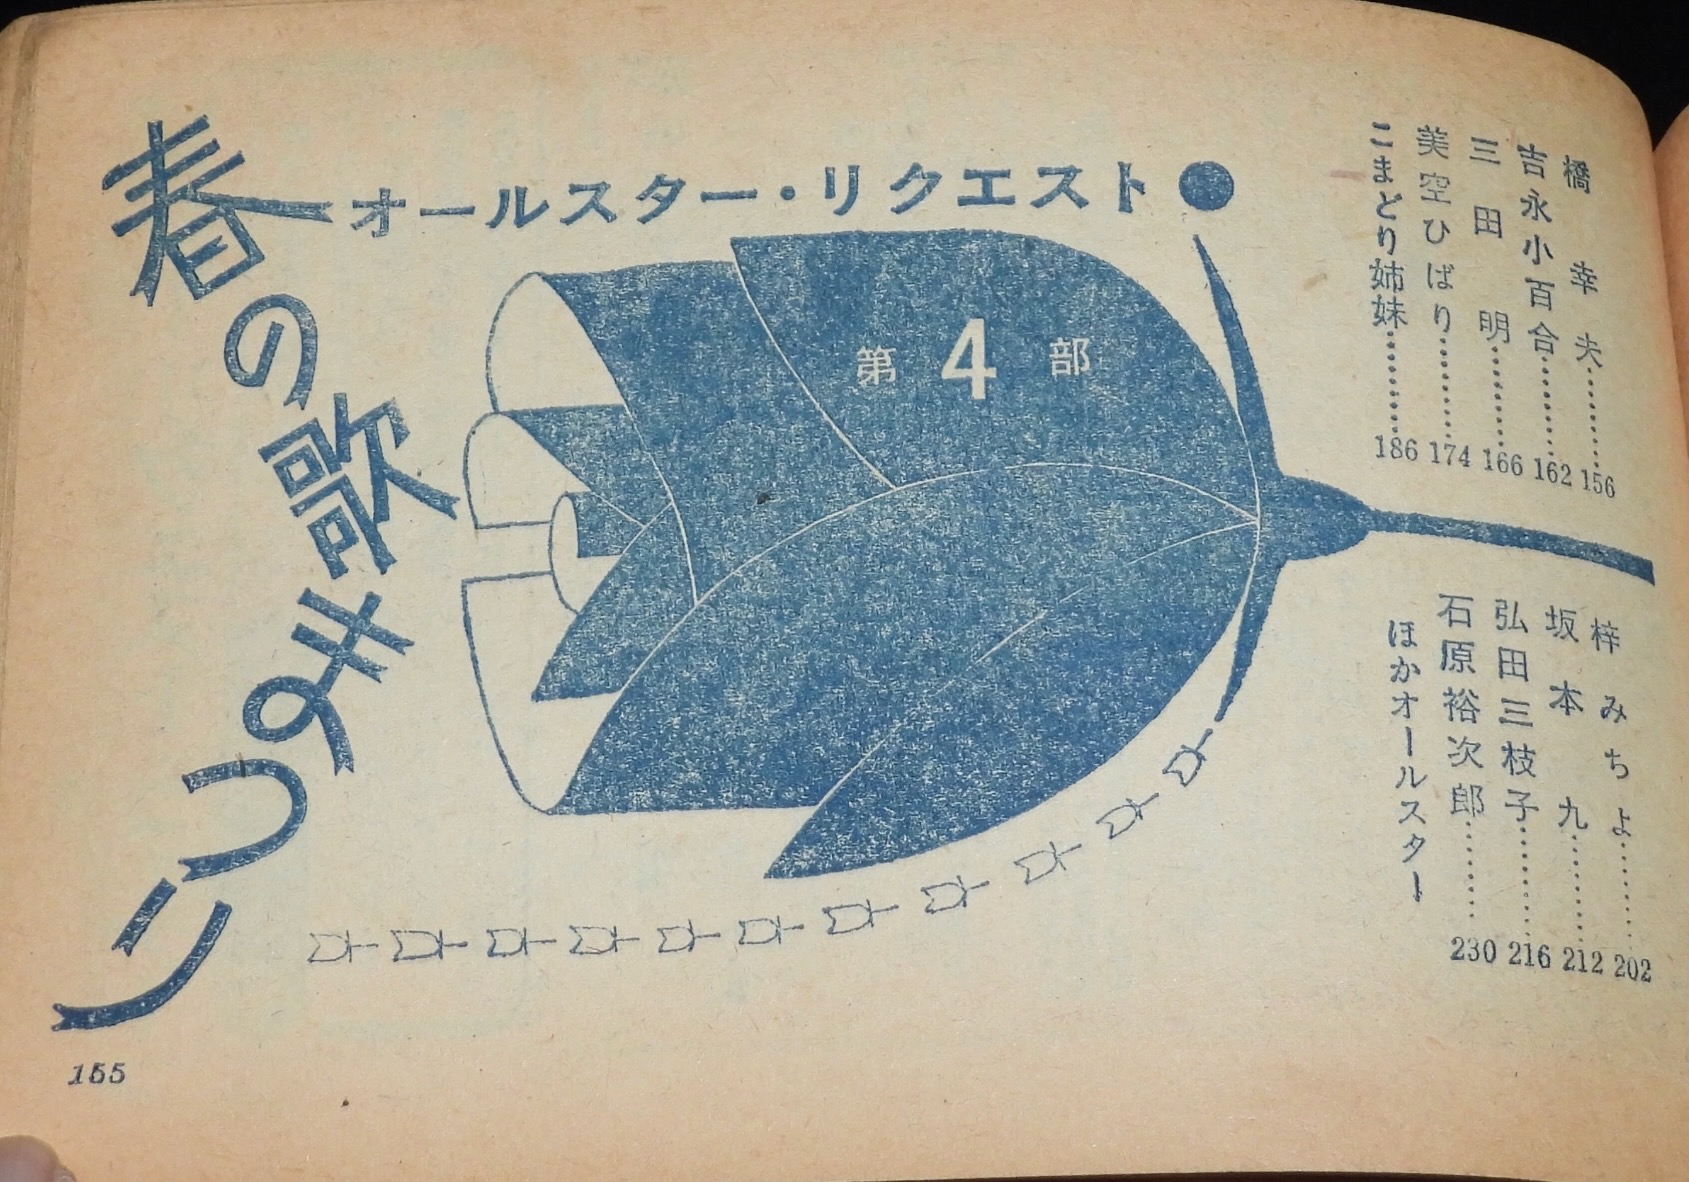 オールスター・リクエスト●
春の歌まつり
第4部
橋幸夫………156
吉永小百合………162
三田明………166
美空ひばり………174
こまどり姉妹………186
梓みちよ………202
坂本九………212
弘田三枝子………216
石原裕次郎………230
ほかオールスター
155